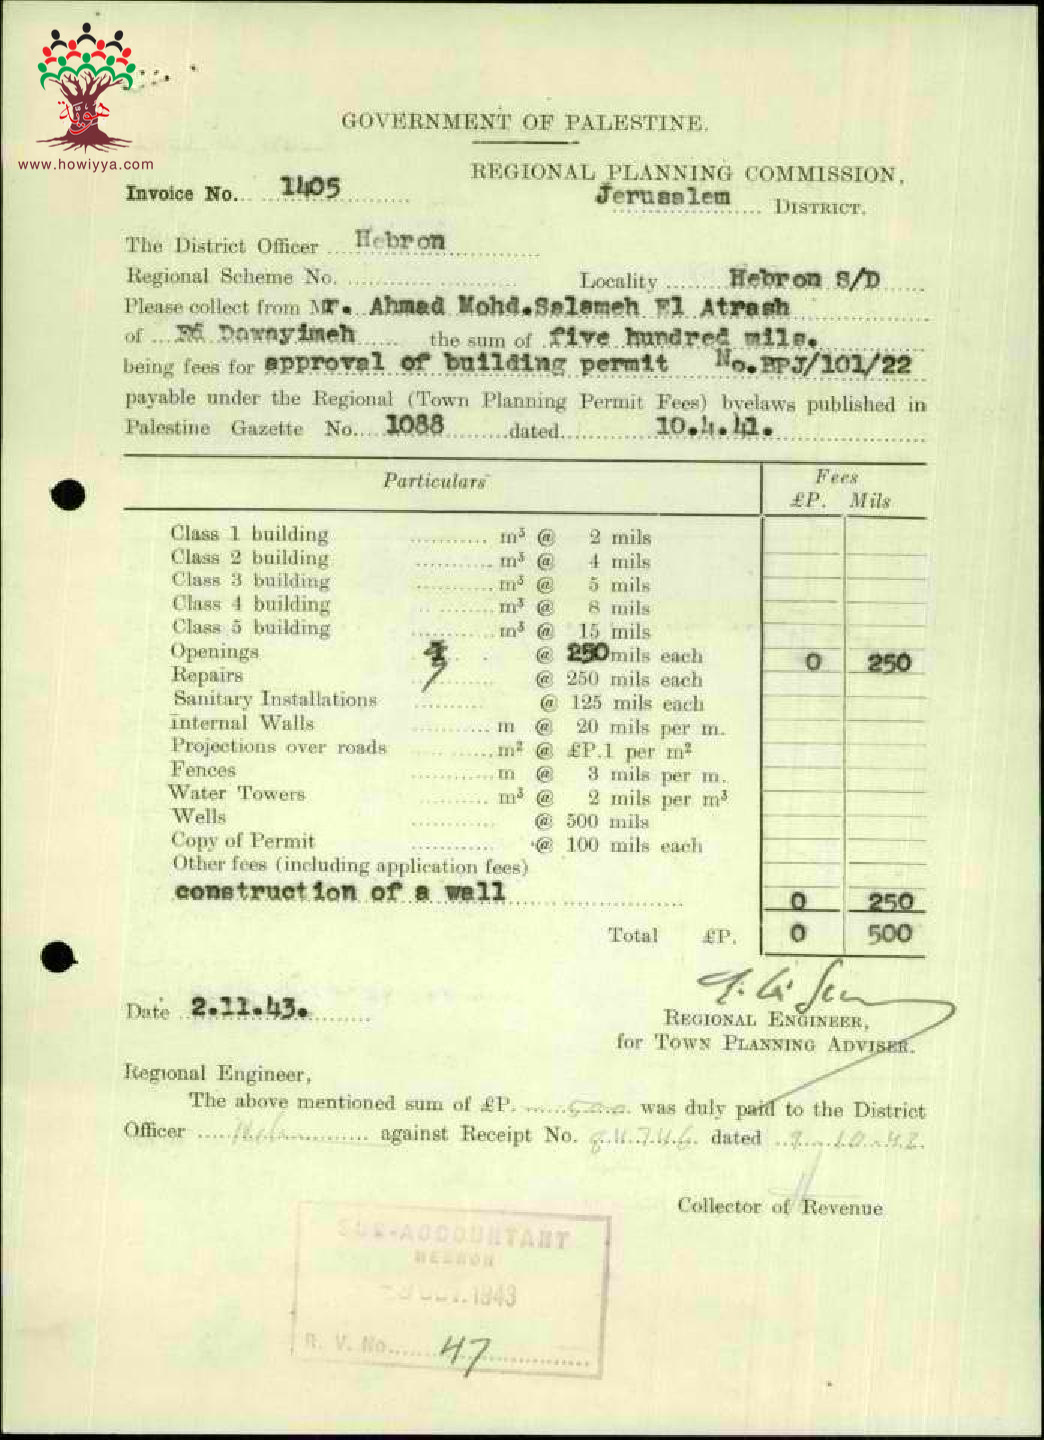 هوية
www.howiyya.com
GOVERNMENT OF PALESTINE.
REGIONAL PLANNING COMMISSION,
Invoice No. 1405
Jerusalem DISTRICT.
The District Officer Hebron
Regional Scheme No. Locality Hebron S/D
Please collect from Mr. Ahmad Mohd.Salameh El Atrash
of Ed Dawayimeh the sum of five hundred mils.
being fees for approval of building permit No.BPJ/101/22
payable under the Regional (Town Planning Permit Fees) byelaws published in
Palestine Gazette No. 1088 dated 10.4.41.
Particulars Fees
£P. Mils
Class 1 building m³ @ 2 mils
Class 2 building m³ @ 4 mils
Class 3 building m³ @ 5 mils
Class 4 building m³ @ 8 mils
Class 5 building m³ @ 15 mils
Openings @ 250 mils each 0 250
Repairs @ 250 mils each
Sanitary Installations @ 125 mils each
Internal Walls m @ 20 mils per m.
Projections over roads m² @ £P.1 per m²
Fences m @ 3 mils per m.
Water Towers m³ @ 2 mils per m³
Wells @ 500 mils
Copy of Permit @ 100 mils each
Other fees (including application fees)
construction of a wall 0 250
Total £P. 0 500
Date 2.11.43.
REGIONAL ENGINEER,
for TOWN PLANNING ADVISER.
Regional Engineer,
The above mentioned sum of £P. 500 was duly paid to the District
Officer against Receipt No. dated
Collector of Revenue
SUB-ACCOUNTANT
HEBRON
1943
R. V. No. 47